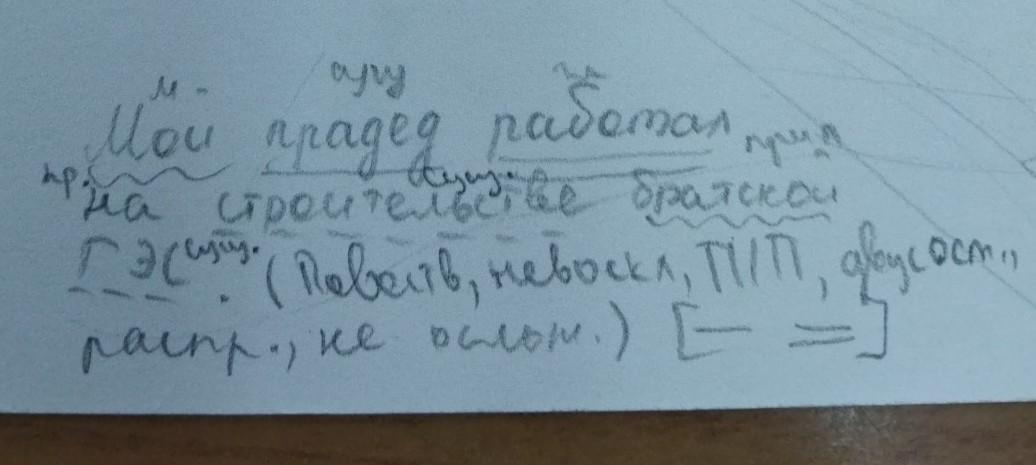 м. сущ гл
Мой прадед работал прил
пр. на строительстве сущ. братской
ГЭС сущ. (Повеств, невоскл, ПП, двусост.,
распр., не ослож.) [— =]